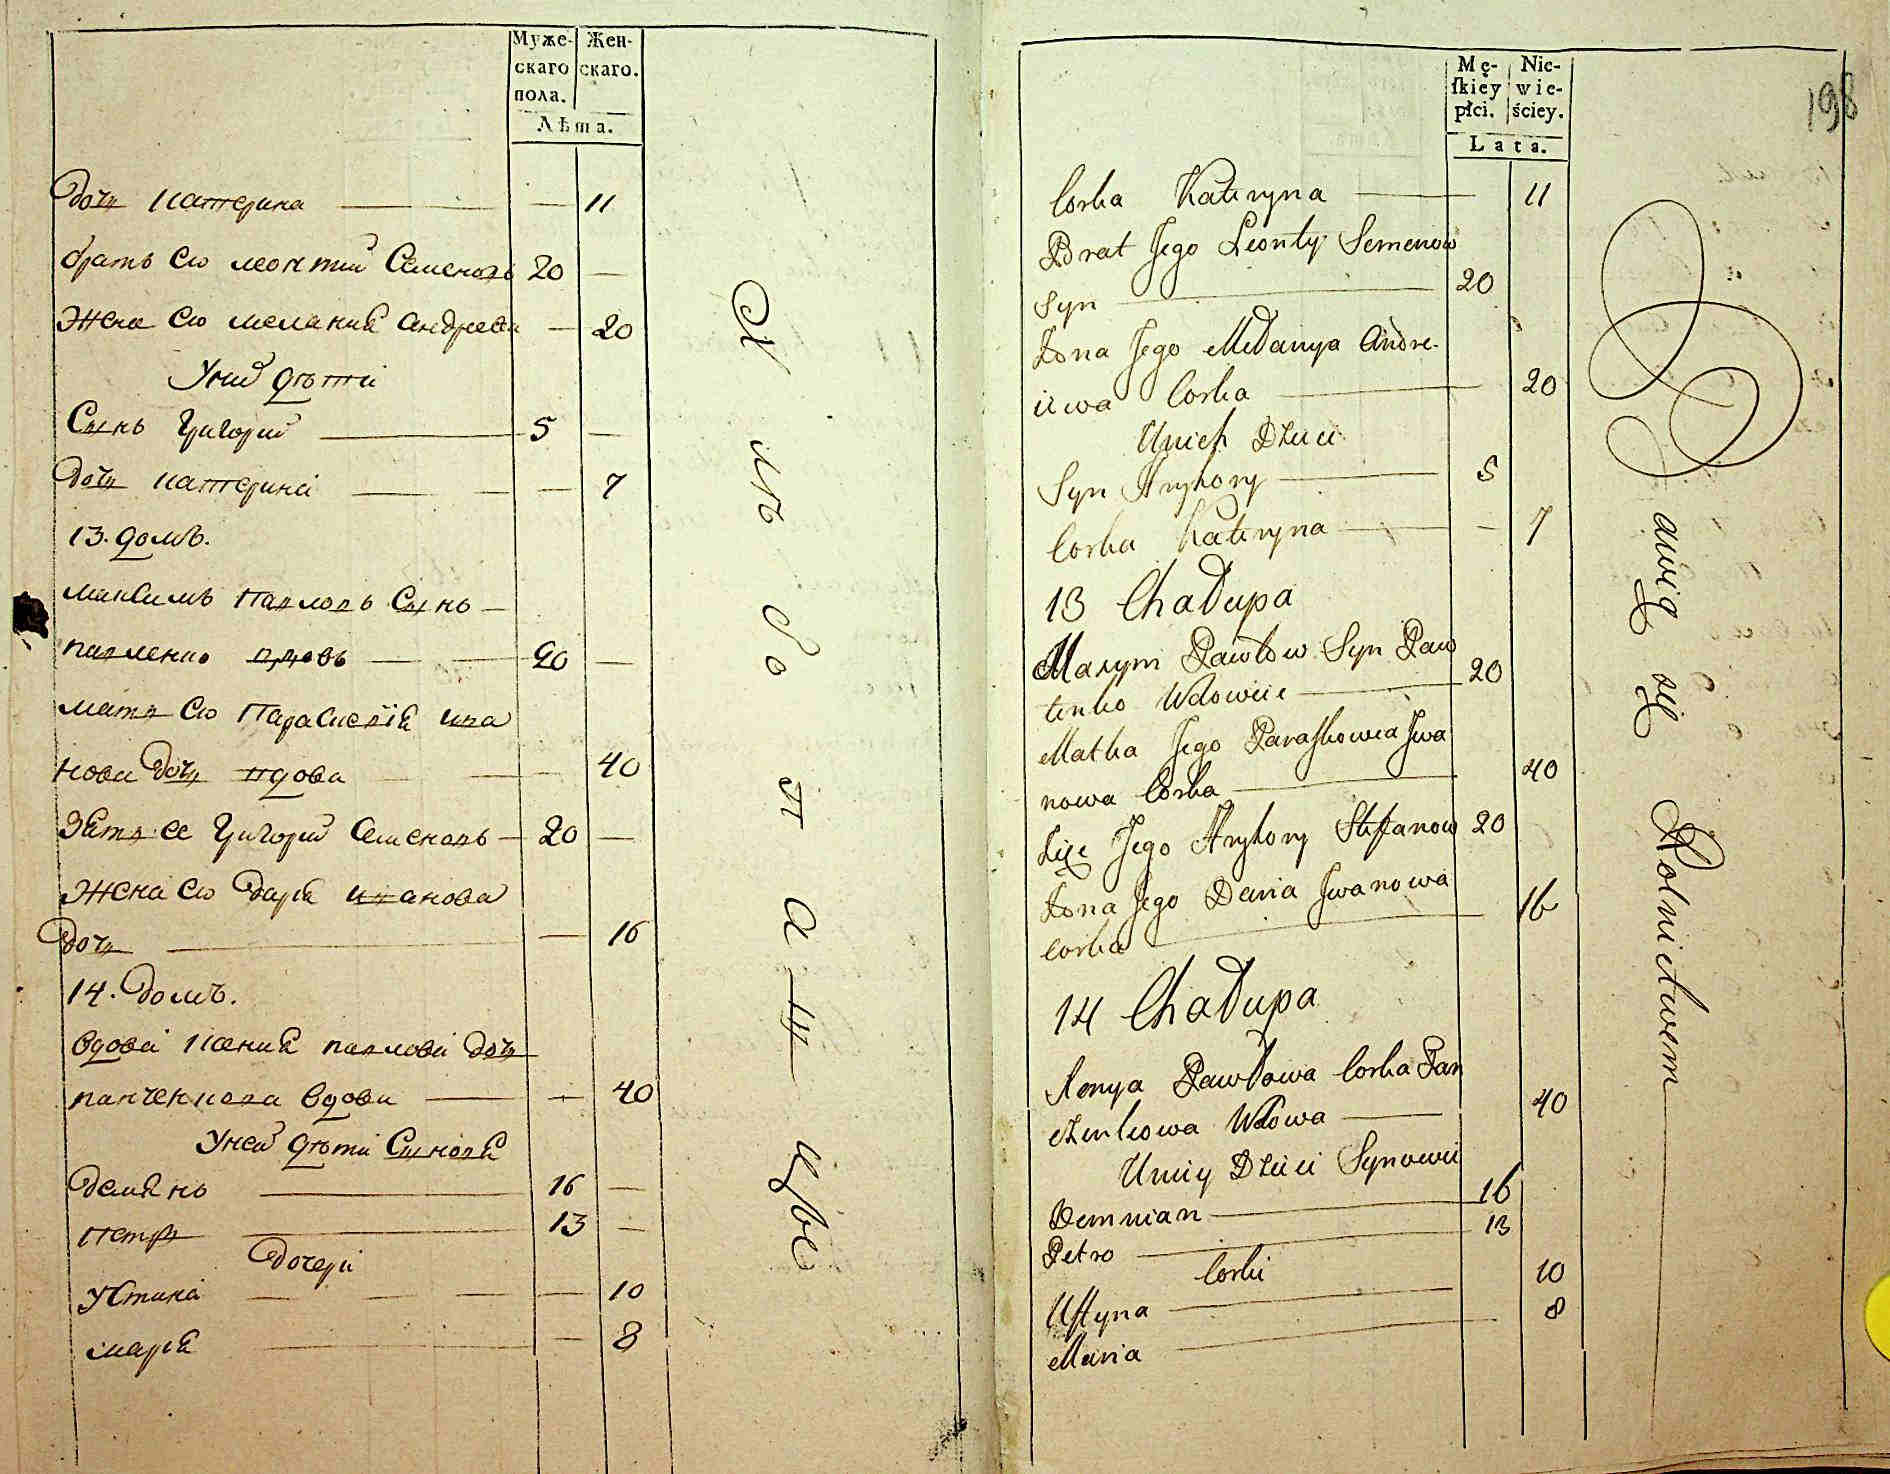 Муже- Жен-
скаго скаго.
пола.
Лѣта.
дочь катерина 11
братъ ево леонтий Семеновъ 20
Жена ево мелания андреева 20
У них дѣти
Сынъ Григорий 5
дочь катерина 7
13. домъ.
максимъ павловъ Сынъ
павленко вдовъ 20
мать ево Парасковия ива
нова дочь вдова 40
Зять ее Григорий Семеновъ 20
Жена ево дарья иванова
дочь 16
14. домъ.
вдова ксения павлова дочь
панченкова вдова 40
У ней дѣти Сыновя
демянъ 16
петръ 13
дочери
Устина 10
марья 8
хлѣбопашцы
Mę- Nie-
ſkiey wie-
płci. ściey.
Lata.
198
Corka Kateryna 11
Brat Jego Leonty Semenow
Syn 20
Żona Jego Mełanya Andre-
iewa Corka 20
U nich Dzieci
Syn Hryhory 5
Corka Kateryna 7
13 Chałupa
Maxym Pawłow Syn Paw
łenko Wdowiec 20
Matka Jego Paraſkowia Jwa
nowa Corka 40
Zięć Jego Hryhory Stefanow 20
Żona Jego Daria Jwanowa
Corka 16
14 Chałupa
Xenya Pawłowa Corka Pan
czenkowa Wdowa 40
U niey Dzieci Synowie
Demnian 16
Petro 13
Corki
Uſtyna 10
Maria 8
Bawią się Rolnictwem